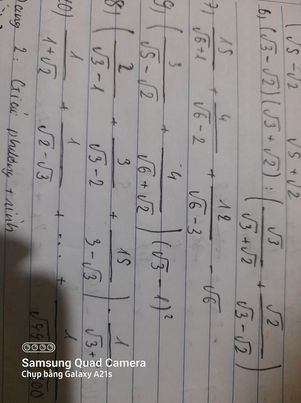 √5 - √2 √5 + √2
6) (√3 - √2)(√3 + √2) : (√3/(√3 + √2) + √2/(√3 - √2))
7) 15/(√6 + 1) + 4/(√6 - 2) + 12/(√6 - 3) - √6
9) (3/(√5 - √2) + 4/(√6 + √2))(√3 - 1)²
8) (2/(√3 - 1) + 3/(√3 - 2) + 15/(3 - √3)) . 1/(√3 +
10) 1/(1 + √2) + 1/(√2 - √3) + ... + 1/
Dạng 2: Giải phương trình
Samsung Quad Camera
Chụp bằng Galaxy A21s